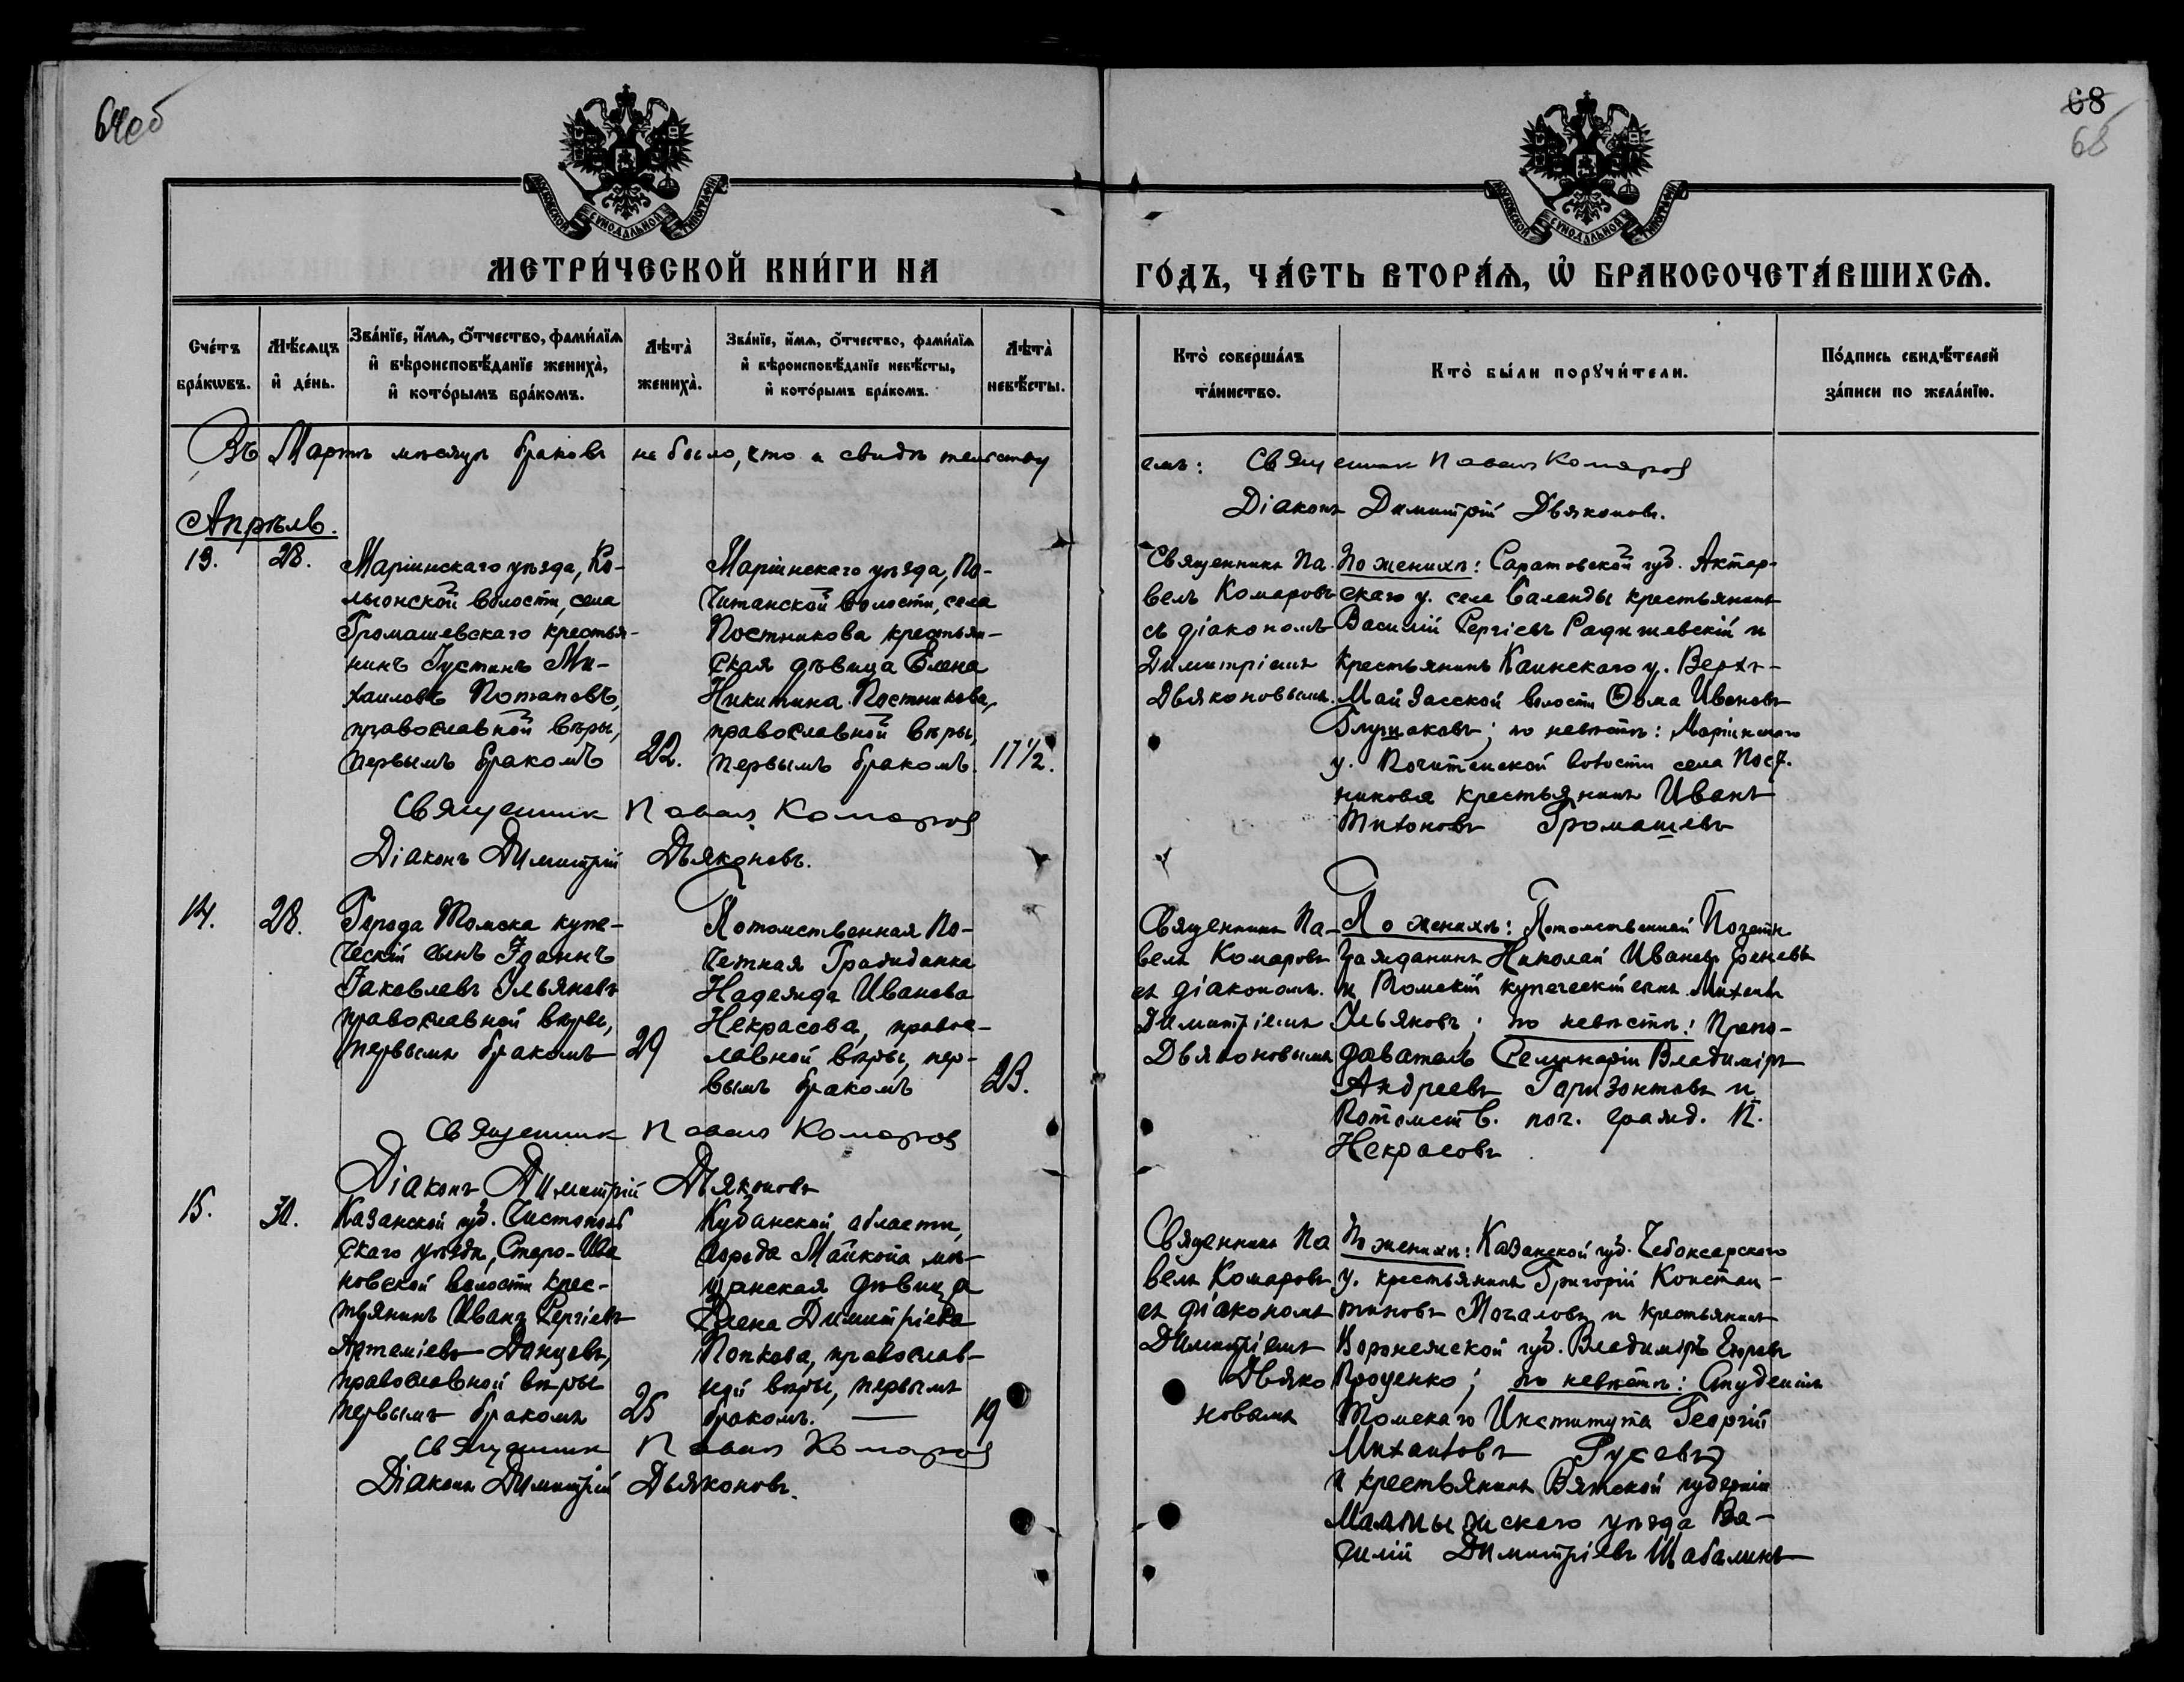 64об
68
68
МОСКОВСКОЙ СѴНОДАЛЬНОЙ ТИПОГРАФІИ
МОСКОВСКОЙ СѴНОДАЛЬНОЙ ТИПОГРАФІИ
МЕТРИ́ЧЕСКОЙ КНИ́ГИ НА
ГО́ДЪ, ЧА́СТЬ ВТОРА́Ѧ, Ѡ҆ БРАКОСОЧЕТА́ВШИХСѦ.
Сче́тъ бра́кѡвъ.
Мѣ́сѧцъ и҆ де́нь.
Зва́нїе, и҆́мѧ, ѻ҆́тчество, фами́лїѧ
и҆ вѣроисповѣ́данїе жениха̀,
и҆ кото́рымъ бра́комъ.
Лѣта̀ жениха̀.
Зва́нїе, и҆́мѧ, ѻ҆́тчество, фами́лїѧ
и҆ вѣроисповѣ́данїе невѣ́сты,
и҆ кото́рымъ бра́комъ.
Лѣта̀ невѣ́сты.
Кто̀ соверша́лъ та́инство.
Кто̀ бы́ли порꙋчи́тели.
По́дпись свидѣ́телей
за́писи по жела́нїю.
Въ Мартѣ мѣсяцѣ браковъ не было, что и свидѣтельству
емъ: Священникъ Павелъ Комаров
Діаконъ Димитрій Дьяконовъ.
Апрѣль.
13.
28.
Маріинскаго уѣзда, Ко-
льонской волости, села
Громашевскаго крестья-
нинъ Іустинъ Ми-
хаиловъ Потаповъ,
православной вѣры,
первымъ бракомъ
22.
Маріинскаго уѣзда, По-
читанской волости, села
Постникова крестьян-
ская дѣвица Елена
Никитина Постникова,
православной вѣры,
первымъ бракомъ.
17 1/2.
Священник Павелъ Комаров
Діаконъ Димитрій Дьяконовъ.
Священникъ Па-
велъ Комаровъ
съ діакономъ
Димитріемъ
Дьяконовымъ.
По женихѣ: Саратовской губ. Аткар-
скаго у. села Баланды крестьянинъ
Василій Сергіевъ Радишевскій и
крестьянинъ Каинскаго у. Верхъ-
Майзасской волости Ѳома Ивановъ
Глушаковъ; по невѣстѣ: Маріинскаго
у. Почитанской волости села Пост-
никова крестьянинъ Иванъ
Тихоновъ Громашевъ
14.
28.
Города Томска купе-
ческій сынъ Іоаннъ
Іаковлевъ Ульяновъ
православной вѣры,
первымъ бракомъ
29
Потомственная По-
четная Гражданка
Надежда Иванова
Некрасова, право-
славной вѣры, пер-
вымъ бракомъ
23.
Священник Павелъ Комаров
Діаконъ Димитрій Дьяконовъ
Священникъ Па-
велъ Комаровъ
съ діакономъ
Димитріемъ
Дьяконовымъ
По женихѣ: Потомственный Почетн
гражданинъ Николай Ивановъ
и Томскій купеческій сынъ Михаилъ
Ульяновъ; по невѣстѣ: Препо-
даватель Семинаріи Владиміръ
Андреевъ Гаризонтовъ и
Потомств. поч. гражд. П.
Некрасовъ
15.
30.
Казанской губ. Чистополь
скаго уѣзда, Старо-Ива
новской волости крес-
тьянинъ Иванъ Сергіевъ
Артеміевъ-Данцевъ,
православной вѣры
первымъ бракомъ
25
Кубанской области,
города Майкопа мѣ-
щанская дѣвица
Елена Димитріева
Попкова, православ-
ной вѣры, первымъ
бракомъ. —
19
Священник Павелъ Комаров
Діаконъ Димитрій Дьяконовъ.
Священникъ Па
велъ Комаровъ
съ діакономъ
Димитріемъ
Дьяко
новымъ
По женихѣ: Казанской губ. Чебоксарскаго
у. крестьянинъ Григорій Констан-
тиновъ Мочаловъ и крестьянинъ
Воронежской губ. Владиміръ Егоровъ
Проценко; по невѣстѣ: Студентъ
Томскаго Института Георгій
Михаиловъ Гусевъ
и крестьянинъ Вятской губерніи
Малмыжскаго уѣзда Ва-
силій Димитріевъ Шабалинъ